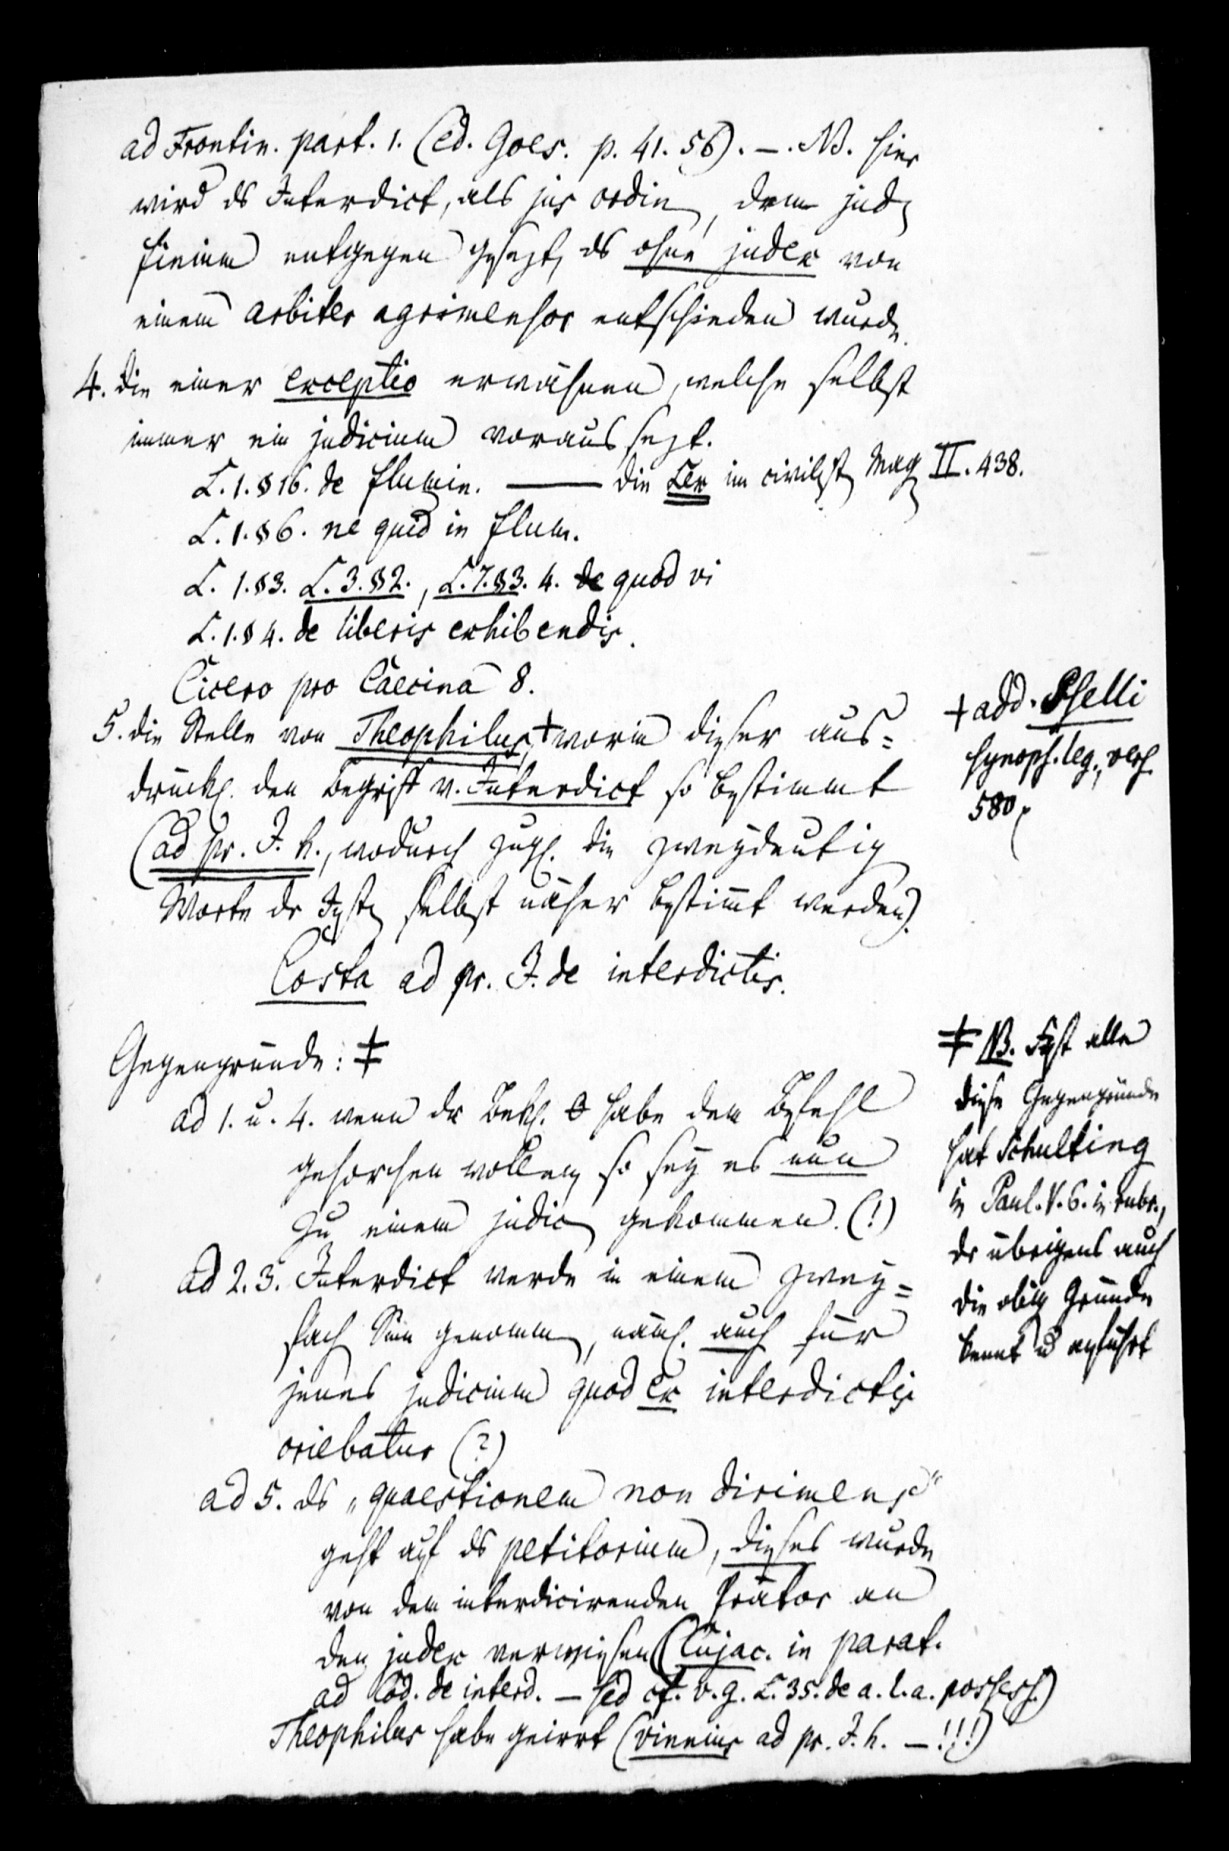 ad Frontin. part. 1. (ed. Goes. p. 41. 56). —. NB. hier
wird ds Interdict, als jus ordin, dem jud
finium entgegen gesezt, ds ohne judex von
einem arbiter agrimensor entschieden wurde.
4. die einer exceptio erwähnen, welche selbst
immer ein judicium voraus sezt.
L. 1. § 16. de flumin. — die Lex im civilist Mag II. 438.
L. 1. § 6. ne quid in flum.
L. 1. § 3. L. 3. § 2., L. 7. § 3. 4. de quod vi
L. 1. § 4. de liberis exhibendis.
Cicero pro Caecina 8.
5. die Stelle von Theophilus, + worin dieser aus=
drückl. den Begriff v. Interdict so bestimmt
(ad pr. J. h., wodurch zugl. die zweydeutig
Worte dr Inst selbst näher bestimt werden).
Costa ad pr. J. de interdictis.
+ add. Pselli
synops. leg., vers.
580
Gegengründe: ‡
ad 1. u. 4. wenn dr Bekl. habe dem Befehl
gehorchen wollen, so sey es nun
zu einem judic gekommen. (!)
ad 2. 3. Interdict werde in einem zwey=
fach Sinn genommen, näml. auch für
jenes judicium quod ex interdictis
oriebatur (?)
ad 5. ds „quaestionem non dirimens“
geht auf ds petitorium, dieses wurde
von dem interdicirenden Prätor an
den judex verwiesen (Cujac. in parat.
ad Cod. de interd. — sed cf. v. g. L. 35. de a. l. a. possess.)
Theophilus habe geirrt (Vinnius ad pr. J. h. — !!!)
‡ NB. Fast alle
diese Gegengründe
hat Schulting
in Paul. V. 6. in rubr.,
dr übrigens auch
die obig Gründe
kennt u anführt